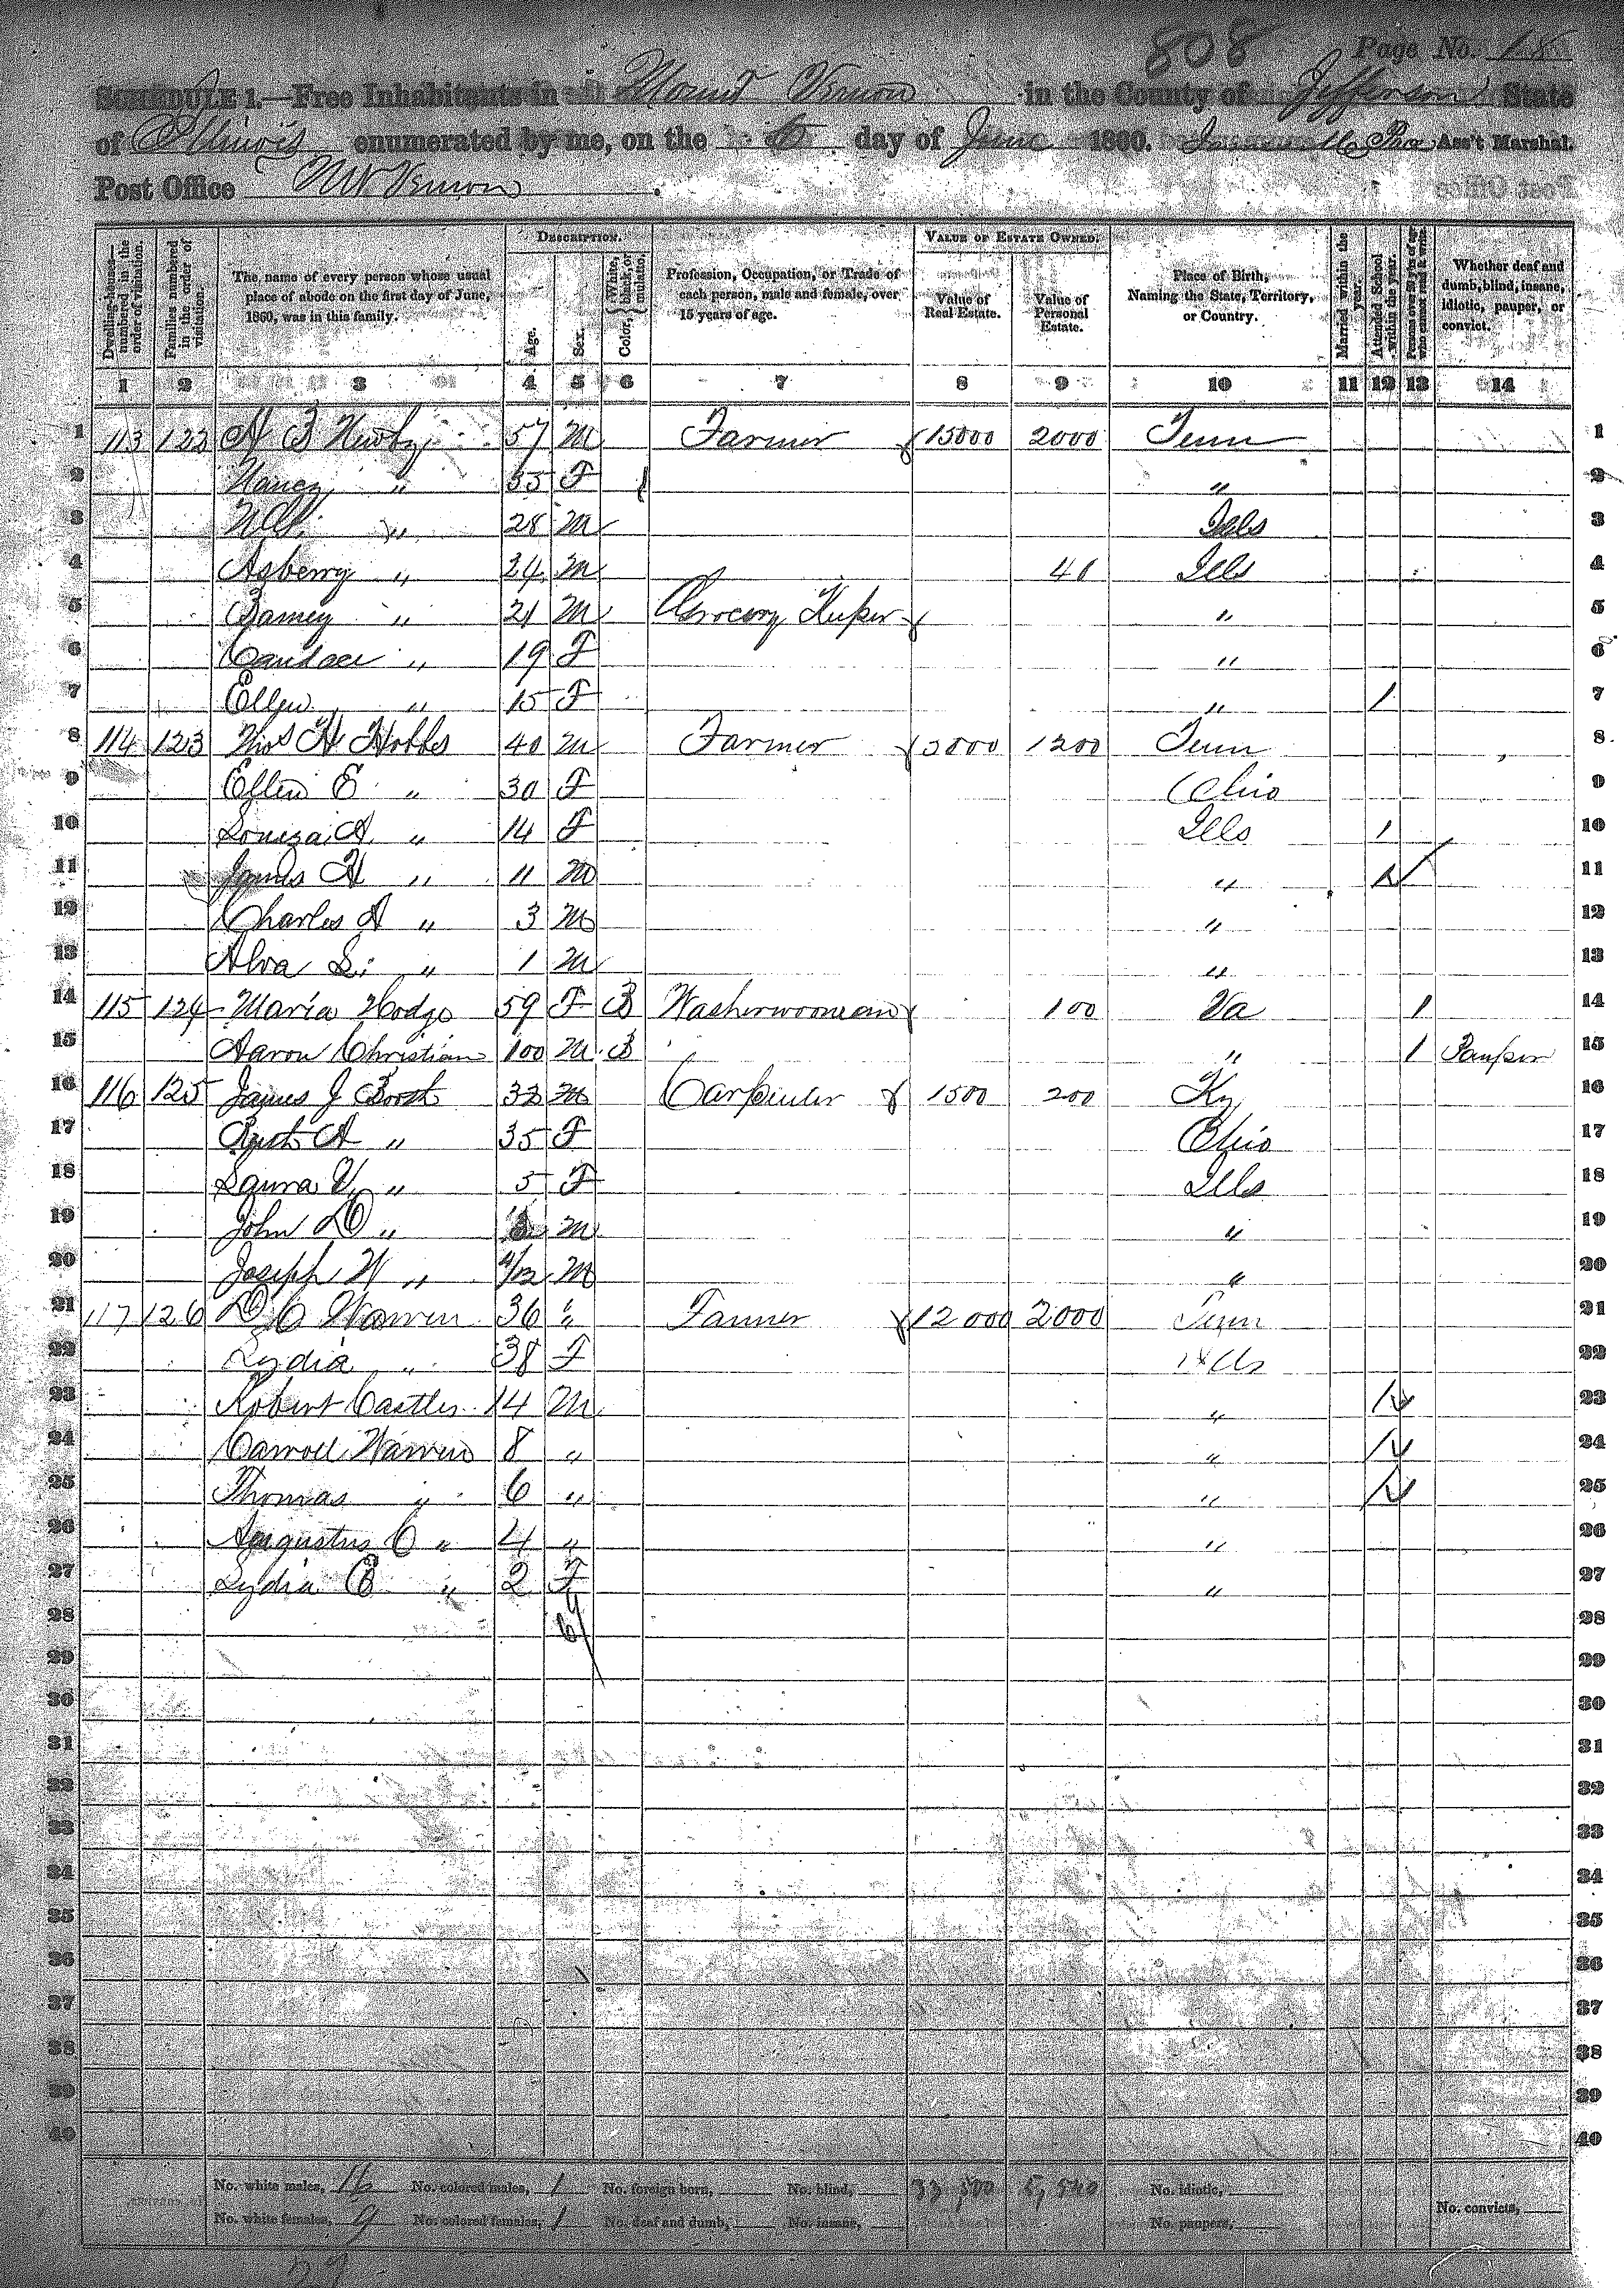 808 Page No. 18
SCHEDULE 1.—Free Inhabitants in Mount Vernon in the County of Jefferson State
of Illinois enumerated by me, on the 6 day of June 1860. Ass't Marshal.
Post Office Mt Vernon.
DESCRIPTION. VALUE OF ESTATE OWNED.
Dwelling-houses—numbered in the order of visitation.
Families numbered in the order of visitation.
The name of every person whose usual place of abode on the first day of June, 1860, was in this family.
Age.
Sex.
Color, {White, black, or mulatto.
Profession, Occupation, or Trade of each person, male and female, over 15 years of age.
Value of Real Estate.
Value of Personal Estate.
Place of Birth, Naming the State, Territory, or Country.
Married within the year.
Attended School within the year.
Persons over 20 y'rs of age who cannot read & write.
Whether deaf and dumb, blind, insane, idiotic, pauper, or convict.
1 2 3 4 5 6 7 8 9 10 11 12 13 14
1 113 122 A B Newby 57 M Farmer 15000 2000 Tenn 1
2 Nancy " 55 F " 2
3 " 28 M Ills 3
4 Asberry " 24 M 40 Ills 4
5 Barney " 21 M Grocery Keeper " 5
6 Candace " 19 F " 6
7 Ellen " 15 F " 1 7
8 114 123 Thos H Hobbs 40 M Farmer 5000 1200 Tenn 8
9 Ellen E " 30 F Ohio 9
10 Louiza A " 14 F Ills 1 10
11 James H " 11 M " 1 11
12 Charles A " 3 M " 12
13 Alva S. " 1 M " 13
14 115 124 Maria Hodge 59 F B Washerwoman 100 Va 1 14
15 Aaron Christian 100 M B " 1 Pauper 15
16 116 125 James J Booth 32 M Carpenter 1500 200 Ky 16
17 A " 35 F Ohio 17
18 Laura V " 5 F Ills 18
19 John D " M " 19
20 Joseph W " 4/12 M " 20
21 117 126 D C Warren 36 " Farmer 12000 2000 Tenn 21
22 Lydia " 38 F Ills 22
23 Robert Castles 14 M " 1 23
24 Carroll Warren 8 " " 1 24
25 Thomas " 6 " " 1 25
26 Augustus C " 4 " " 26
27 Lydia E " 2 F " 27
28 28
29 29
30 30
31 31
32 32
33 33
34 34
35 35
36 36
37 37
38 38
39 39
40 40
No. white males, 16 No. colored males, 1 No. foreign born, No. blind, 33,500 5,540 No. idiotic,
No. white females, 9 No. colored females, 1 No. deaf and dumb, No. insane, No. paupers, No. convicts,